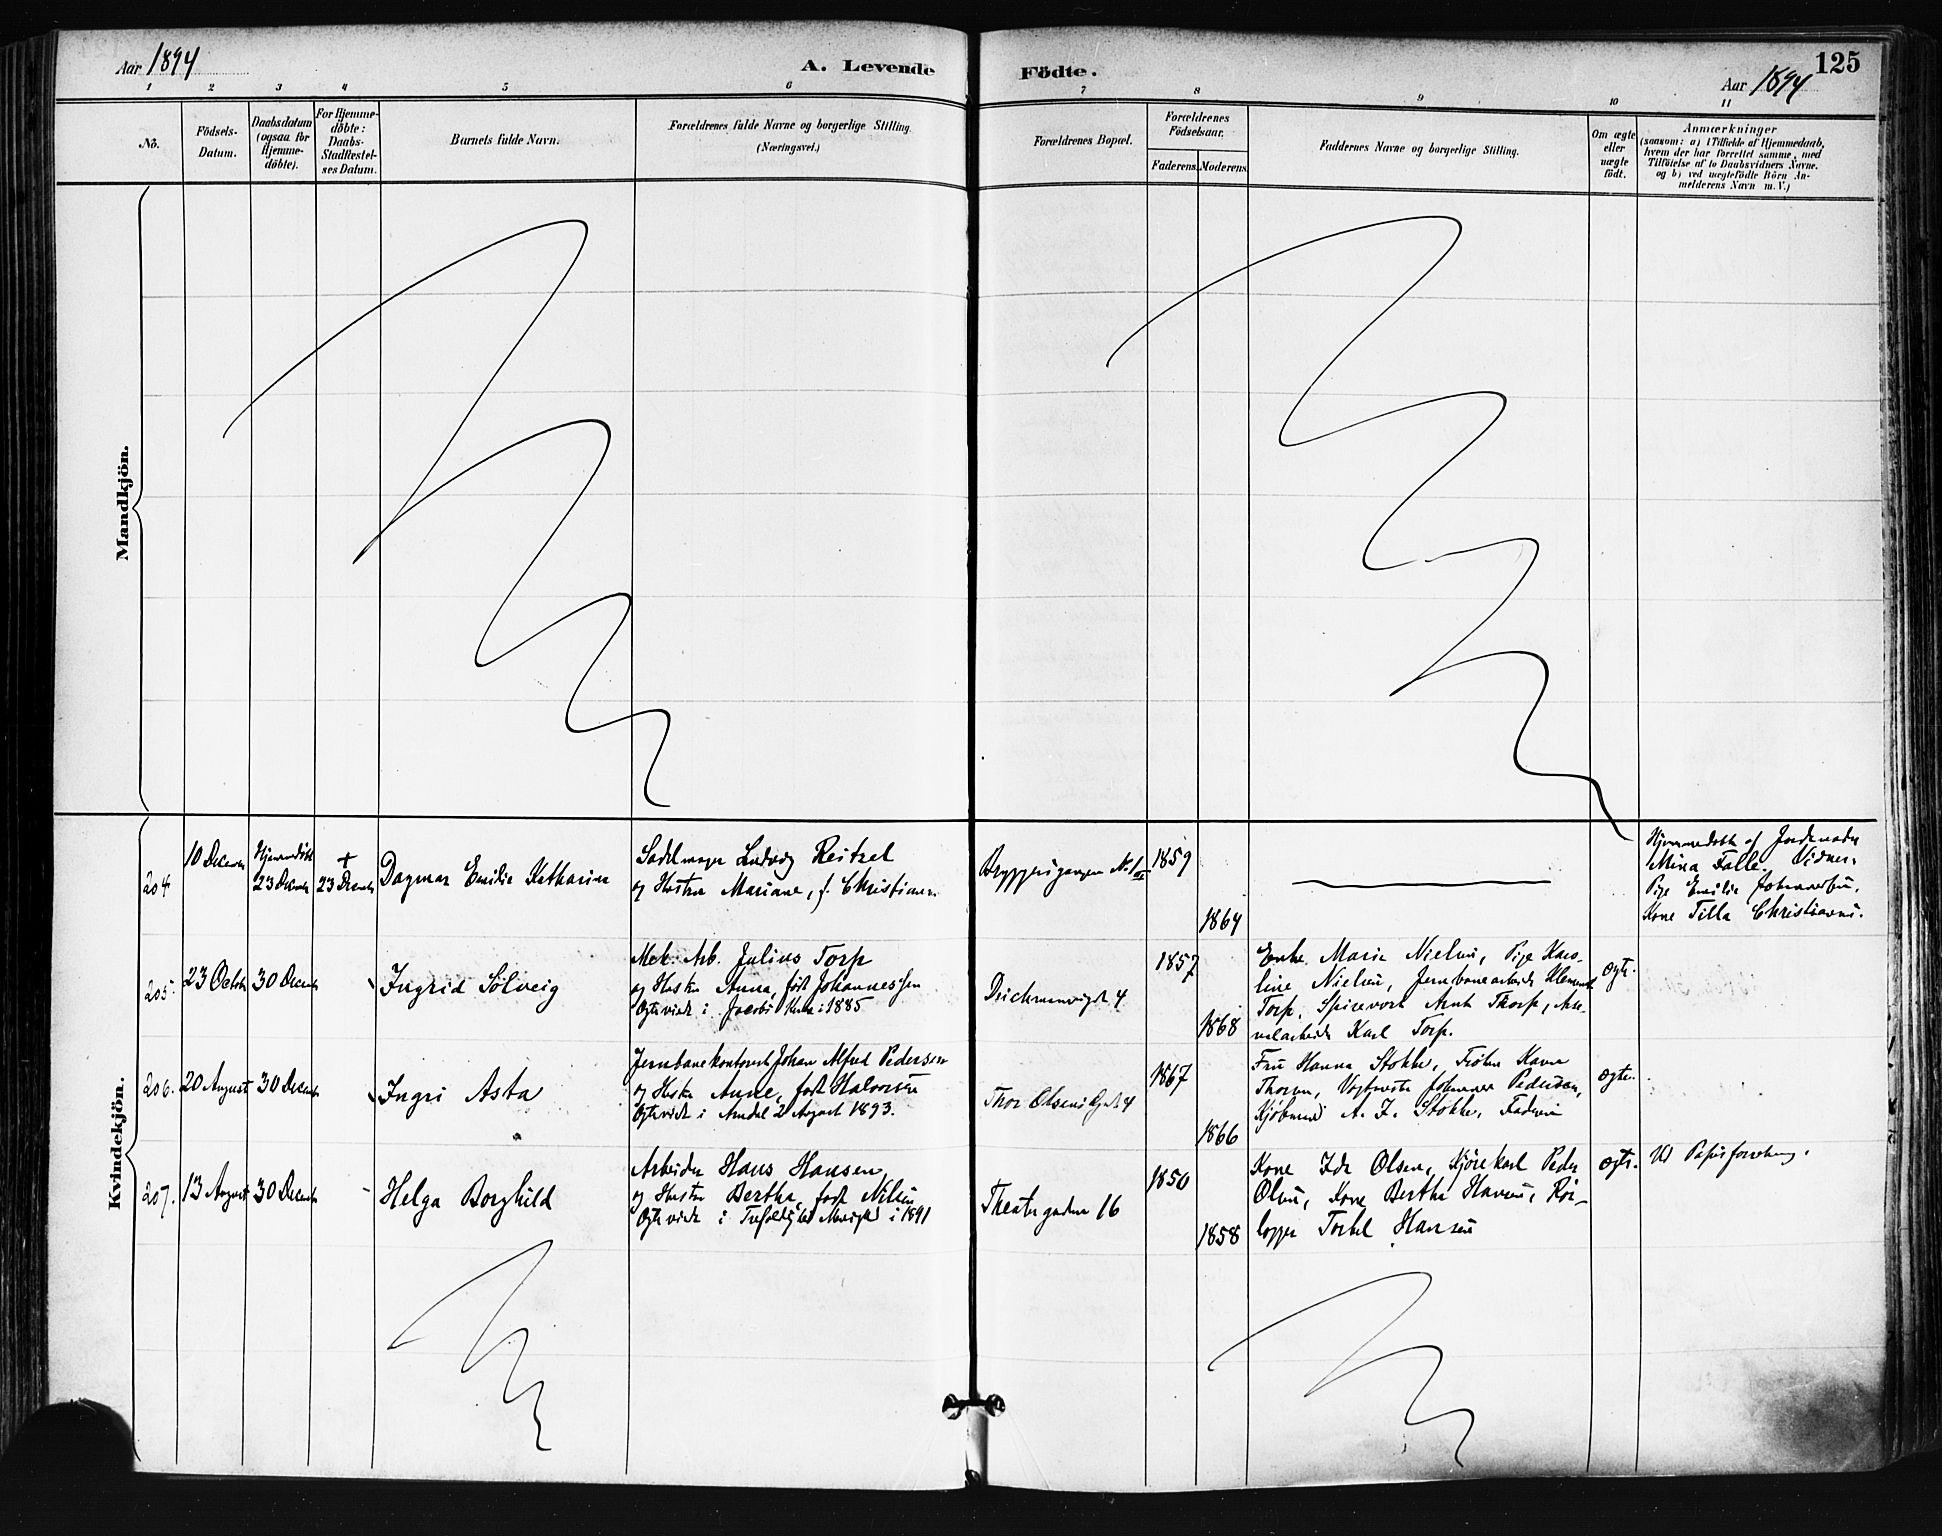 Aar 1894
A. Levende
Födte.
125
Aar 1894
1 2 3 4 5 6 7 8 9 10 11
No.
Födsels-
Datum.
Daabsdatum
(ogsaa for
Hjemme-
döbte).
For Hjemme-
döbte:
Daabs-
Stadfæstel-
ses Datum.
Barnets fulde Navn.
Forældrenes fulde Navne og borgerlige Stilling
(Næringsvei.)
Forældrenes Bopæl.
Forældrenes
Födselsaar.
Faderens. Moderens.
Faddernes Navne og borgerlige Stilling.
Om ægte
eller
uægte
födt.
Anmærkninger
(saasom: a) i Tilfælde af Hjemmedaab,
hvem der har forrettet samme, med
Tilföielse af to Daabsvidners Navne.
og b) ved uægtefödte Börn An-
melderens Navn m. V.)
Mandkjön.
Kvindekjön.
204.
10 December
Hjemmedöbt
23 December
+
23 December
Dagmar Emilie Katharina
Sadelmager Ludvig Reitzel
og Hustru Mariane, f. Christiansen
1859
1864
Hjemmedöbt af Jordemoder
Mina Falle. Vidner:
Pige Emilie
Kone Tilla Christiansen.
205.
23 October
30 December
Ingrid Sölveig
Mek. Arb. Julius Torp
og Hustru Anna, født Johannessen
Ægteviede i Jacobs Kirke i 1885
Deichmansgd 4
1857
1868
Enke Marie Nielsen, Pige Karo-
line Nielsen, Jernbanearbeider Klement
Torp, Arnt Thorp,
Karl Torp.
ægte.
206.
20 August
30 December
Ingri Asta
Jernbanekontorist Johan Alfred Pedersen
og Hustru Anne, født Halvorsen
Ægteviede i Arendal 2 August 1893.
Thor Olsens Gade 4
1867
1866
Fru Hanna Stokke, Frøken
Pedersen,
Kjøbmand A. Stokke, Faderen
ægte.
207.
13 August
30 December
Helga Borghild
Arbeider Hans Hansen
og Hustru Bertha, født Nilsen
Ægteviede i Trefoldighed Menighed i 1891
Theatergaden 16
1850
1858
Kone Ida Olsen, Kjørekarl Peder
Olsen, Kone Berthe Hansen, Rør-
lægger Hansen
ægte.